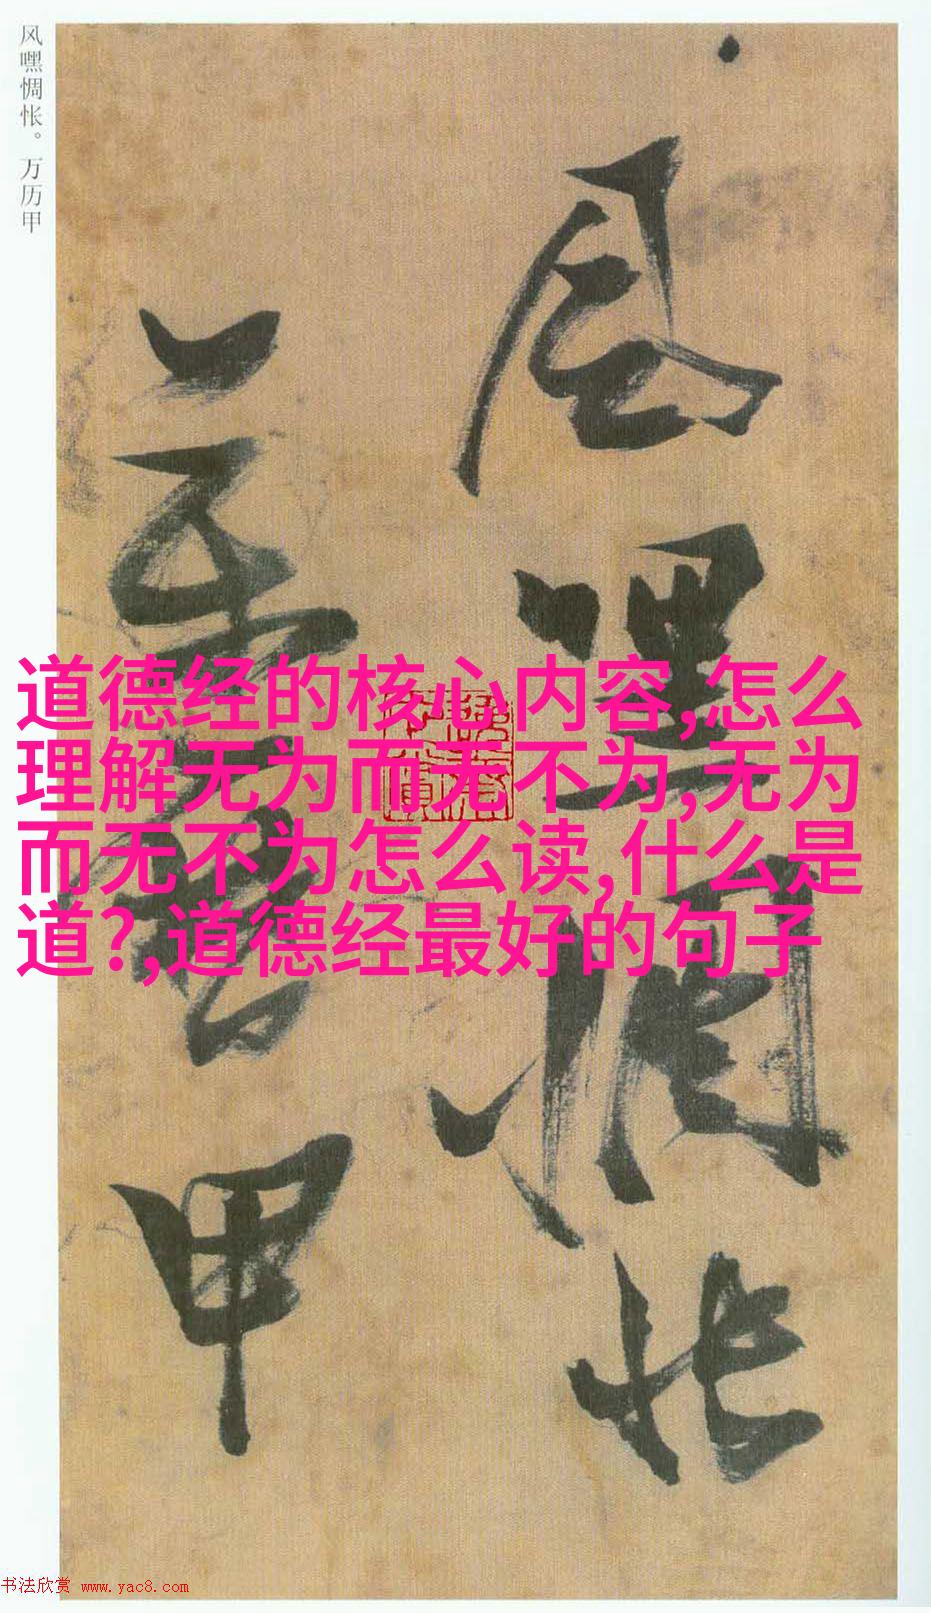 风嘿惆怅。万历甲
风嘿
惆怅
万历甲
道德经的核心内容,怎么
理解无为而无不为,无为
而无不为怎么读,什么是
道?,道德经最好的句子
书法欣赏 www.yac8.com